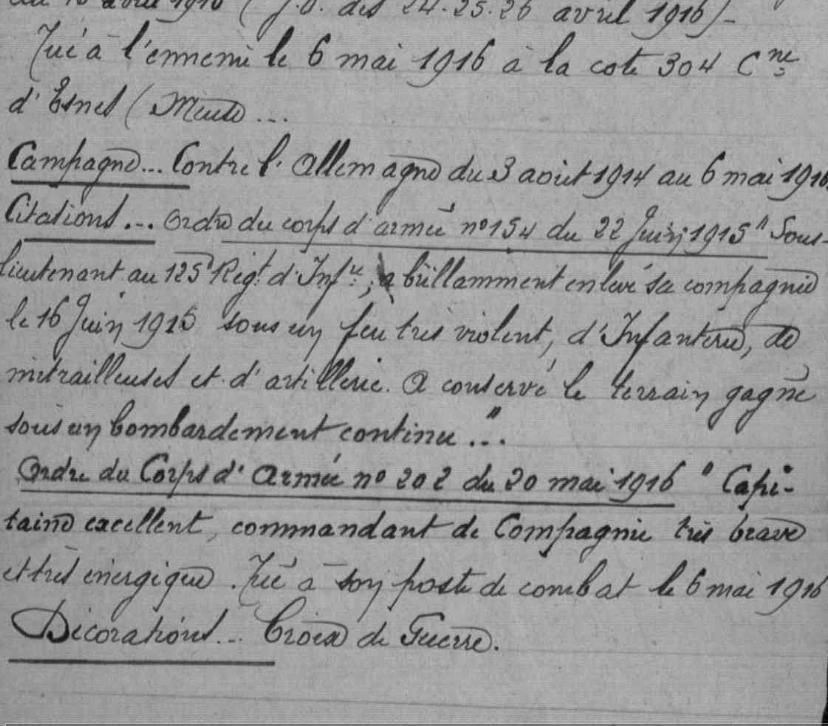 avril 1916 (J.O. des 24.25.26 avril 1916)_
Tué à l'ennemi le 6 mai 1916 à la cote 304 Cne
d'Esnes (Meuse...
Campagne... Contre l'Allemagne du 3 aout 1914 au 6 mai 1916
Citations... Ordre du corps d'armée n° 154 du 22 Juin 1915 " Sous-
lieutenant au 125e Regt d'Infie ; a brillamment enlevé sa compagnie
le 16 Juin 1915 sous un feu très violent, d'Infanterie, de
mitrailleuses et d'artillerie. A conservé le terrain gagné
sous un bombardement continu...".
Ordre du Corps d'Armée n° 202 du 20 mai 1916 " Capi-
taine excellent, commandant de Compagnie très brave
et très énergique. Tué à son poste de combat le 6 mai 1916
Décorations... Croix de Guerre.